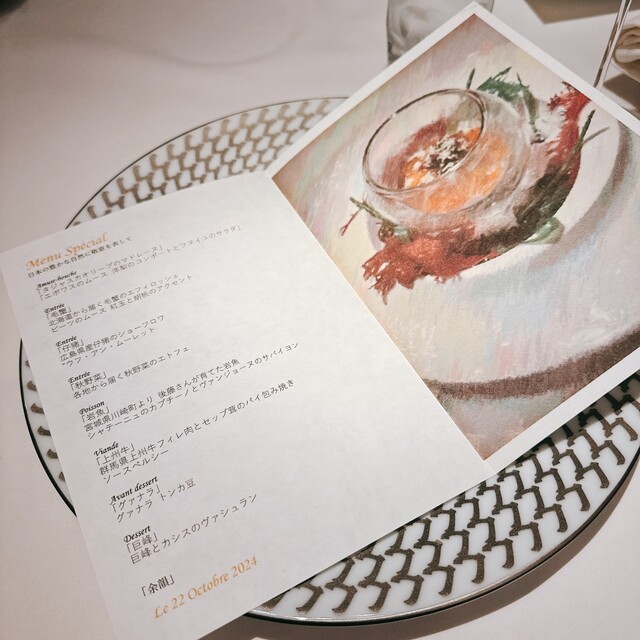 Menu Special
日本の豊かな自然に敬意を表して
Amuse-bouche
「タジャスカオリーブのマドレーヌ」
「エポワスのムース 洋梨のコンポートとフヌイユのサラダ」
Entrée
「毛蟹」
北海道から届く毛蟹のエフィロッシェ
ビーツのムース 紅玉と胡桃のアクセント
Entrée
「仔猪」
広島県産仔猪のショーフロワ
“ウフ・アン・ムーレット
Entrée
「秋野菜」
各地から届く秋野菜のエトフェ
Poisson
「岩魚」
宮城県川崎町より 後藤さんが育てた岩魚
シャテーニュのカプチーノとヴァンジョーヌのサバイヨン
Viande
「上州牛」
群馬県上州牛フィレ肉とセップ茸のパイ包み焼き
ソースペルシー
Avant dessert
「グァナラ」
グァナラ トンカ豆
Dessert
「巨峰」
巨峰とカシスのヴァシュラン
「余韻」
Le 22 Octobre 2024